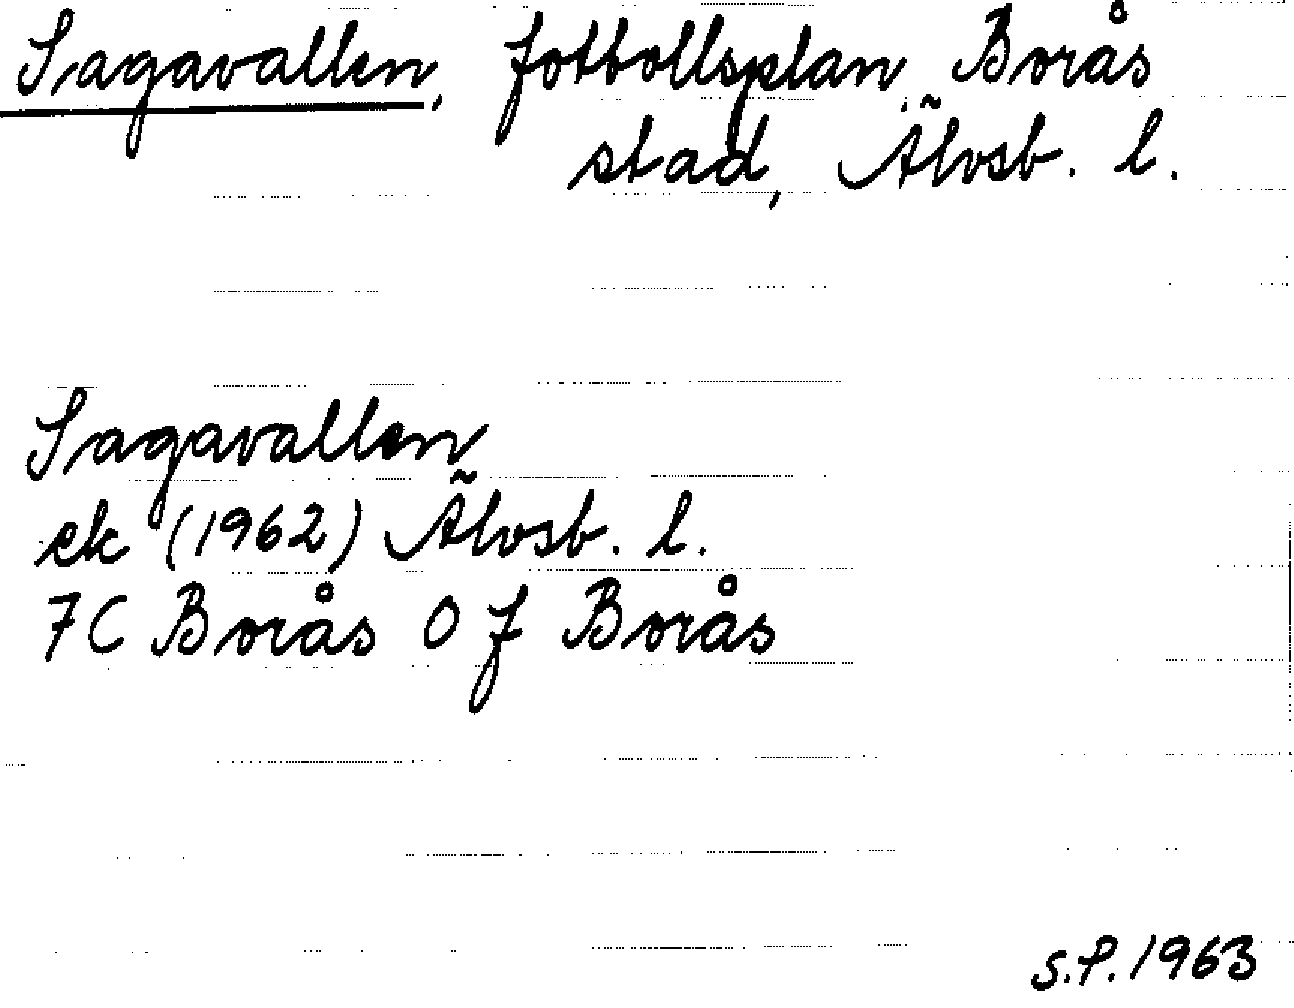 Sagavallen, fotbollsplan, Borås
stad, Älvsb. l.
Sagavallen
ek (1962) Älvsb. l.
7C Borås O f Borås
S.P. 1963